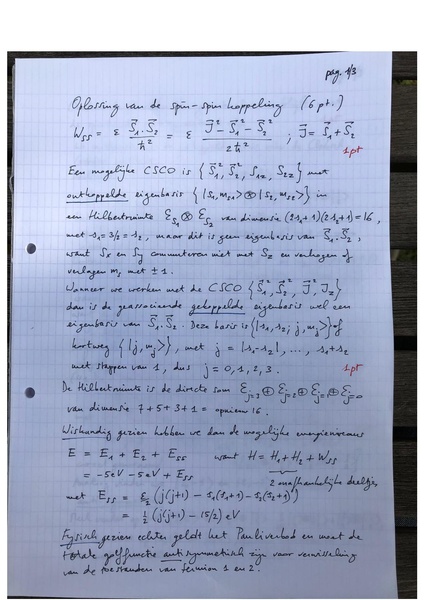 pag. 1/3
Oplossing van de spin-spin koppeling (6 pt.)
W_SS = ε S⃗₁·S⃗₂ / ħ² = ε (J⃗² - S⃗₁² - S⃗₂²) / 2ħ² ; J⃗ = S⃗₁ + S⃗₂
1pt
Een mogelijke CSCO is {S⃗₁², S⃗₂², S₁z, S₂z} met
ontkoppelde eigenbasis {|s₁, m_s1> ⊗ |s₂, m_s2>} in
een Hilbertruimte ℰ_S1 ⊗ ℰ_S2 van dimensie (2s₁+1)(2s₂+1) = 16,
met s₁ = 3/2 = s₂, maar dit is geen eigenbasis van S⃗₁·S⃗₂,
want Sx en Sy commuteren niet met Sz en verhogen of
verlagen m_s met ±1.
Wanneer we werken met de CSCO {S⃗₁², S⃗₂², J⃗², Jz}
dan is de geassocieerde gekoppelde eigenbasis wel een
eigenbasis van S⃗₁·S⃗₂. Deze basis is {|s₁, s₂; j, m_j>} of
kortweg {|j, m_j>}, met j = |s₁-s₂|, ..., s₁+s₂
met stappen van 1, dus j = 0, 1, 2, 3.
1pt
De Hilbertruimte is de directe som ℰ_j=3 ⊕ ℰ_j=2 ⊕ ℰ_j=1 ⊕ ℰ_j=0
van dimensie 7+5+3+1 = opnieuw 16.
Wiskundig gezien hebben we dan de mogelijke energieniveaus
E = E₁ + E₂ + E_SS want H = H₁ + H₂ + W_SS
= -5eV - 5eV + E_SS 2 onafhankelijke deeltjes
met E_SS = ε/2 (j(j+1) - s₁(s₁+1) - s₂(s₂+1))
= 1/2 (j(j+1) - 15/2) eV
Fysisch gezien echter geldt het Pauliverbod en moet de
totale golffunctie antisymmetrisch zijn voor verwisseling
van de toestanden van fermion 1 en 2.